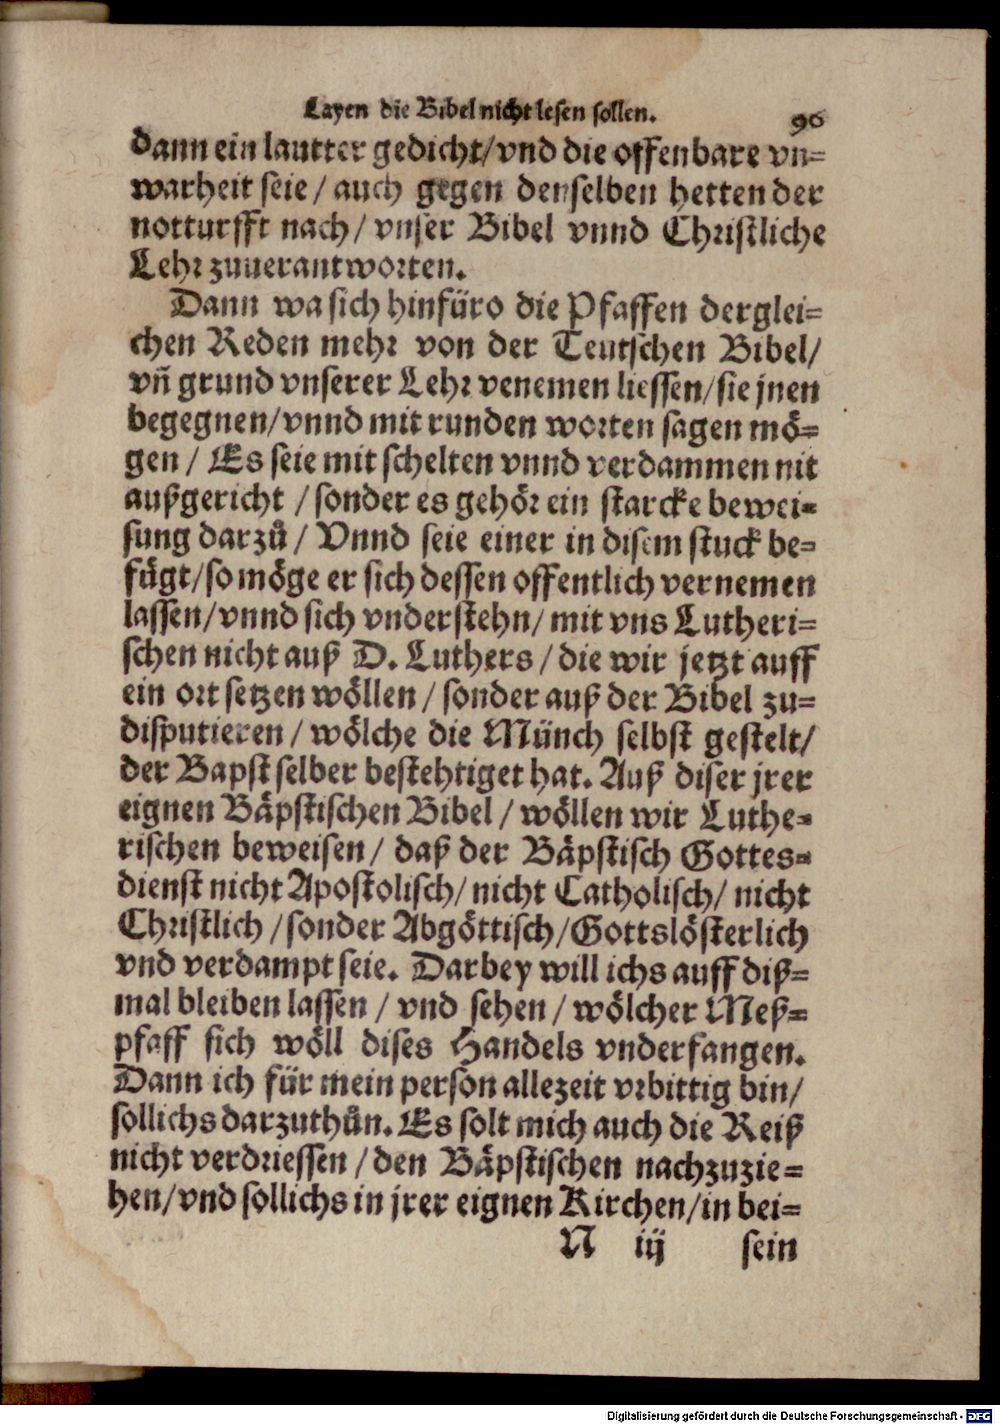 Layen die Bibel nicht lesen sollen. 96
dann ein lautter gedicht/vnd die offenbare vn=
warheit seie / auch gegen denselben hetten der
notturfft nach/ vnser Bibel vnnd Christliche
Lehr zuuerantworten.
Dann wa sich hinfüro die Pfaffen derglei=
chen Reden mehr von der Teutschen Bibel/
vñ grund vnserer Lehr venemen liessen/sie jnen
begegnen/vnnd mit runden worten sagen mö=
gen / Es seie mit schelten vnnd verdammen nit
außgericht /sonder es gehör ein starcke bewei=
sung darzů/ Vnnd seie einer in disem stuck be=
fůgt/so möge er sich dessen offentlich vernemen
lassen/vnnd sich vnderstehn/ mit vns Lutheri=
schen nicht auß D. Luthers/die wir jetzt auff
ein ort setzen wöllen /sonder auß der Bibel zu=
disputieren / wölche die Münch selbst gestelt/
der Bapst selber bestehtiget hat. Auß diser jrer
eignen Bäpstischen Bibel / wöllen wir Luthe=
rischen beweisen/ daß der Bäpstisch Gottes=
dienst nicht Apostolisch/ nicht Catholisch/ nicht
Christlich /sonder Abgöttisch/Gottslösterlich
vnd verdampt seie. Darbey will ichs auff diß=
mal bleiben lassen / vnd sehen / wölcher Meß=
pfaff sich wöll dises Handels vnderfangen.
Dann ich für mein person allezeit vrbittig bin/
sollichs darzuthůn. Es solt mich auch die Reiß
nicht verdriessen /den Bäpstischen nachzuzie=
hen/vnd sollichs in jrer eignen Kirchen/in bei=
N iij sein
Digitalisierung gefördert durch die Deutsche Forschungsgemeinschaft - DFG